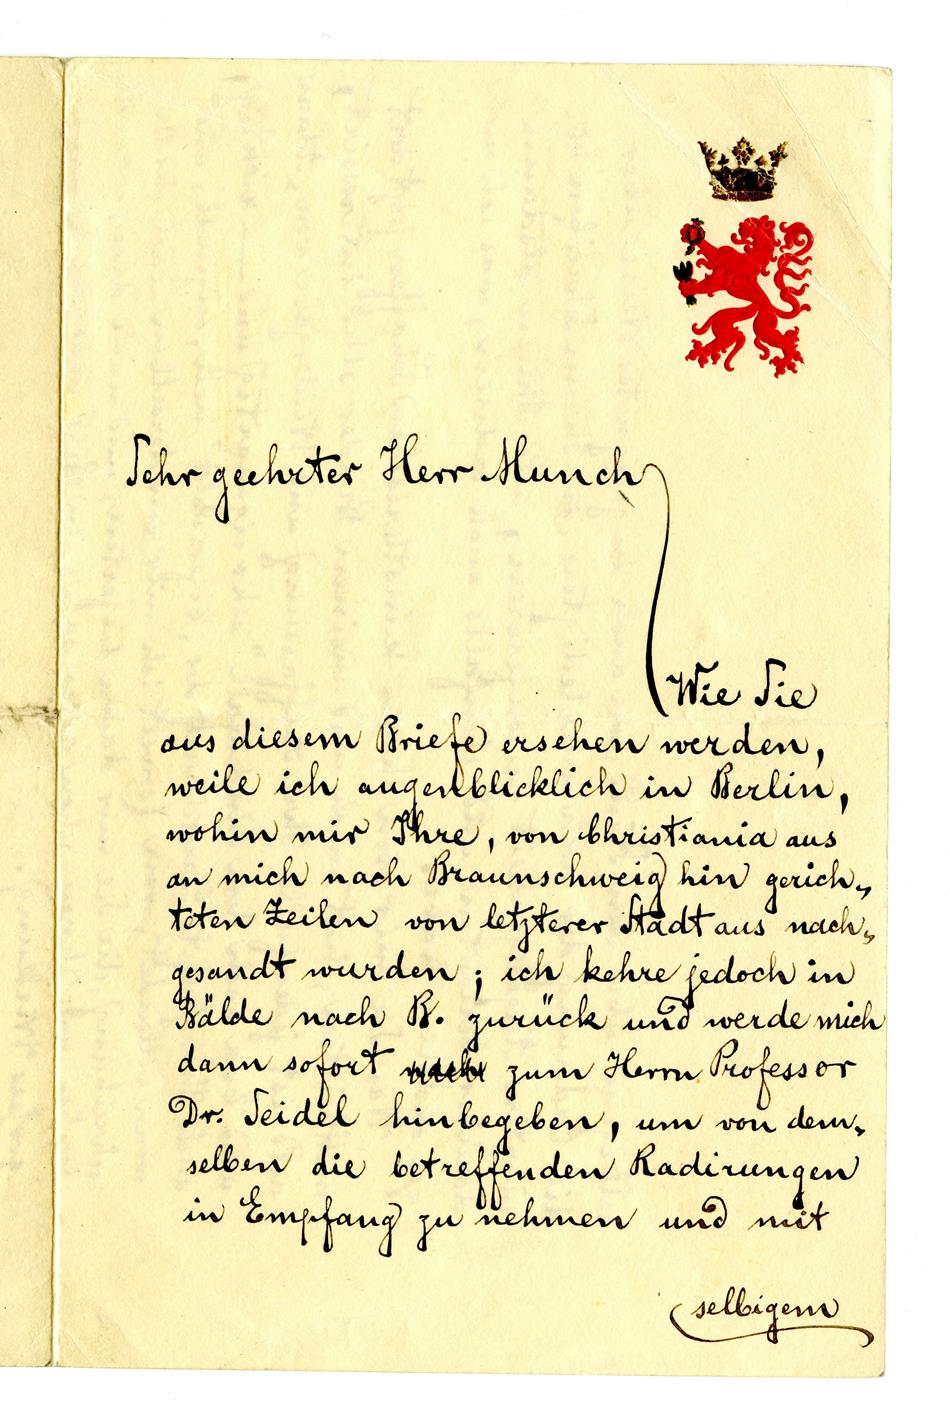 Sehr geehrter Herr Munch
Wie Sie
aus diesem Briefe ersehen werden,
weile ich augenblicklich in Berlin,
wohin mir Ihre, von Christiania aus
an mich nach Braunschweig hin gerich„
teten Zeilen von letzterer Stadt aus nach„
gesandt wurden; ich kehre jedoch in
Bälde nach B. zurück und werde mich
dann sofort zum Herrn Professor
Dr. Seidel hinbegeben, um von dem„
selben die betreffenden Radirungen
in Empfang zu nehmen und mit
selbigem